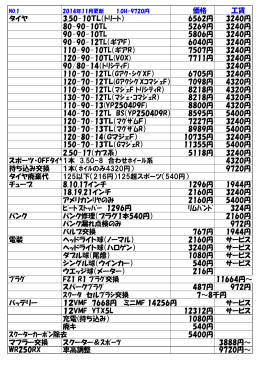 NO.1 2014年11月更新 10H-9720円 価格 工賃
タイヤ 3.50-10TL(トリート) 6562円 3240円
80-90-10TL 5269円 3240円
90-90-10TL 5806円 3240円
90-90-12TL(ギアF) 6040円 3240円
110-90-10TL(ギアR) 7507円 3240円
120-90-10TL(VOX) 7711円 3240円
90/80-14(トリシティF) 3240円
110-70-12TL(Gアク・シグXF) 6705円 3240円
120-70-12TL(Gアク・シグXコマジェF) 5198円 3240円
110-70-12TL(マジェスティ-F) 3240円
130-70-12TL(マジェ・コマジェR) 3240円
110-90-13(YP2504D9F) 8805円 3240円
140-70-12TL BS(YP2504D9R) 8595円 5400円
120-70-13TL(マグザムF) 3240円
130-70-13TL(マグザムR) 5400円
120-80-14(GマジェF) 10735円 3240円
150-70-13TL(GマジェR) 11355円 5400円
2.50-17(カブ系) 5118円 3240円
スポーツ・OFFタイヤ 1本 3.50-8 合わせホイール系 4320円
持ち込み交換 1本(ホイルのみ4320円) 9720円
タイヤ廃棄代 125以下(216円)125超スポーツ(540円)
チューブ 8.10.17インチ 1296円 1944円
18.19.21インチ 2160円 3240円
アメリカンリヤのみ 2160円 5400円
ビートストッパー 1296円 リムハント 324円
パンク パンク修理(プラグ1本540円) 2160円
パンク漏れ点検のみ 972円
バルブ交換 767円 1944円
電装 ヘッドライト球(ノーマル) 2160円 サービス
ヘッドライト球(ハロゲン) 3240円 サービス
ダブル球(尾燈) 1080円 サービス
シングル球(ウインカー) 540円 サービス
ウエッジ球(メーター) 216円
プラグ FZ1 R1 プラグ交換 11664円~
スパークプラグ 487円 972円
スクータ セルブラシ交換 7~8千円
バッテリー 12VMF 7668円 ミニMF 14256円
12VMF YTX5L 12312円 サービス
充電(持ち込み) 1080円
廃キ 540円
スクーターカーボン除去 5400円
マフラー交換 スクーター&スポーツ 3888円~
WR250RX 車高調整 9720円~